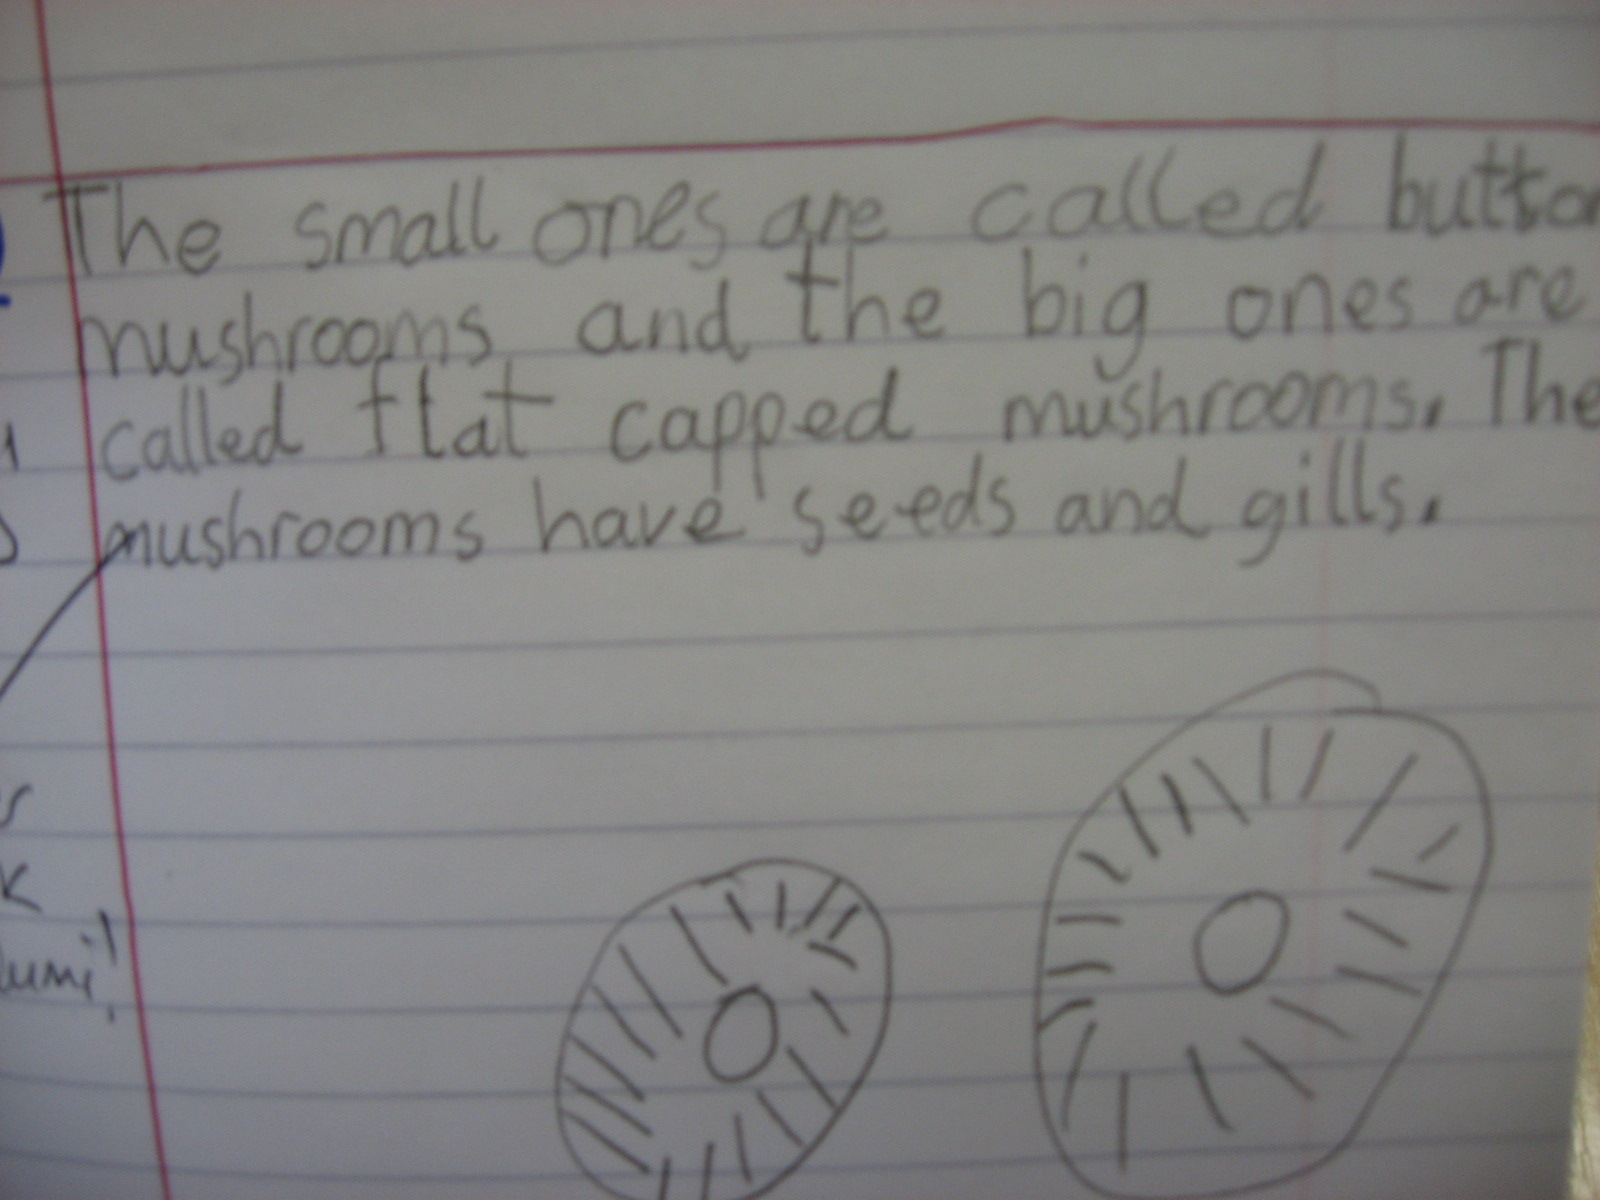 The small ones are called button
mushrooms and the big ones are
called flat capped mushrooms. The
mushrooms have seeds and gills.